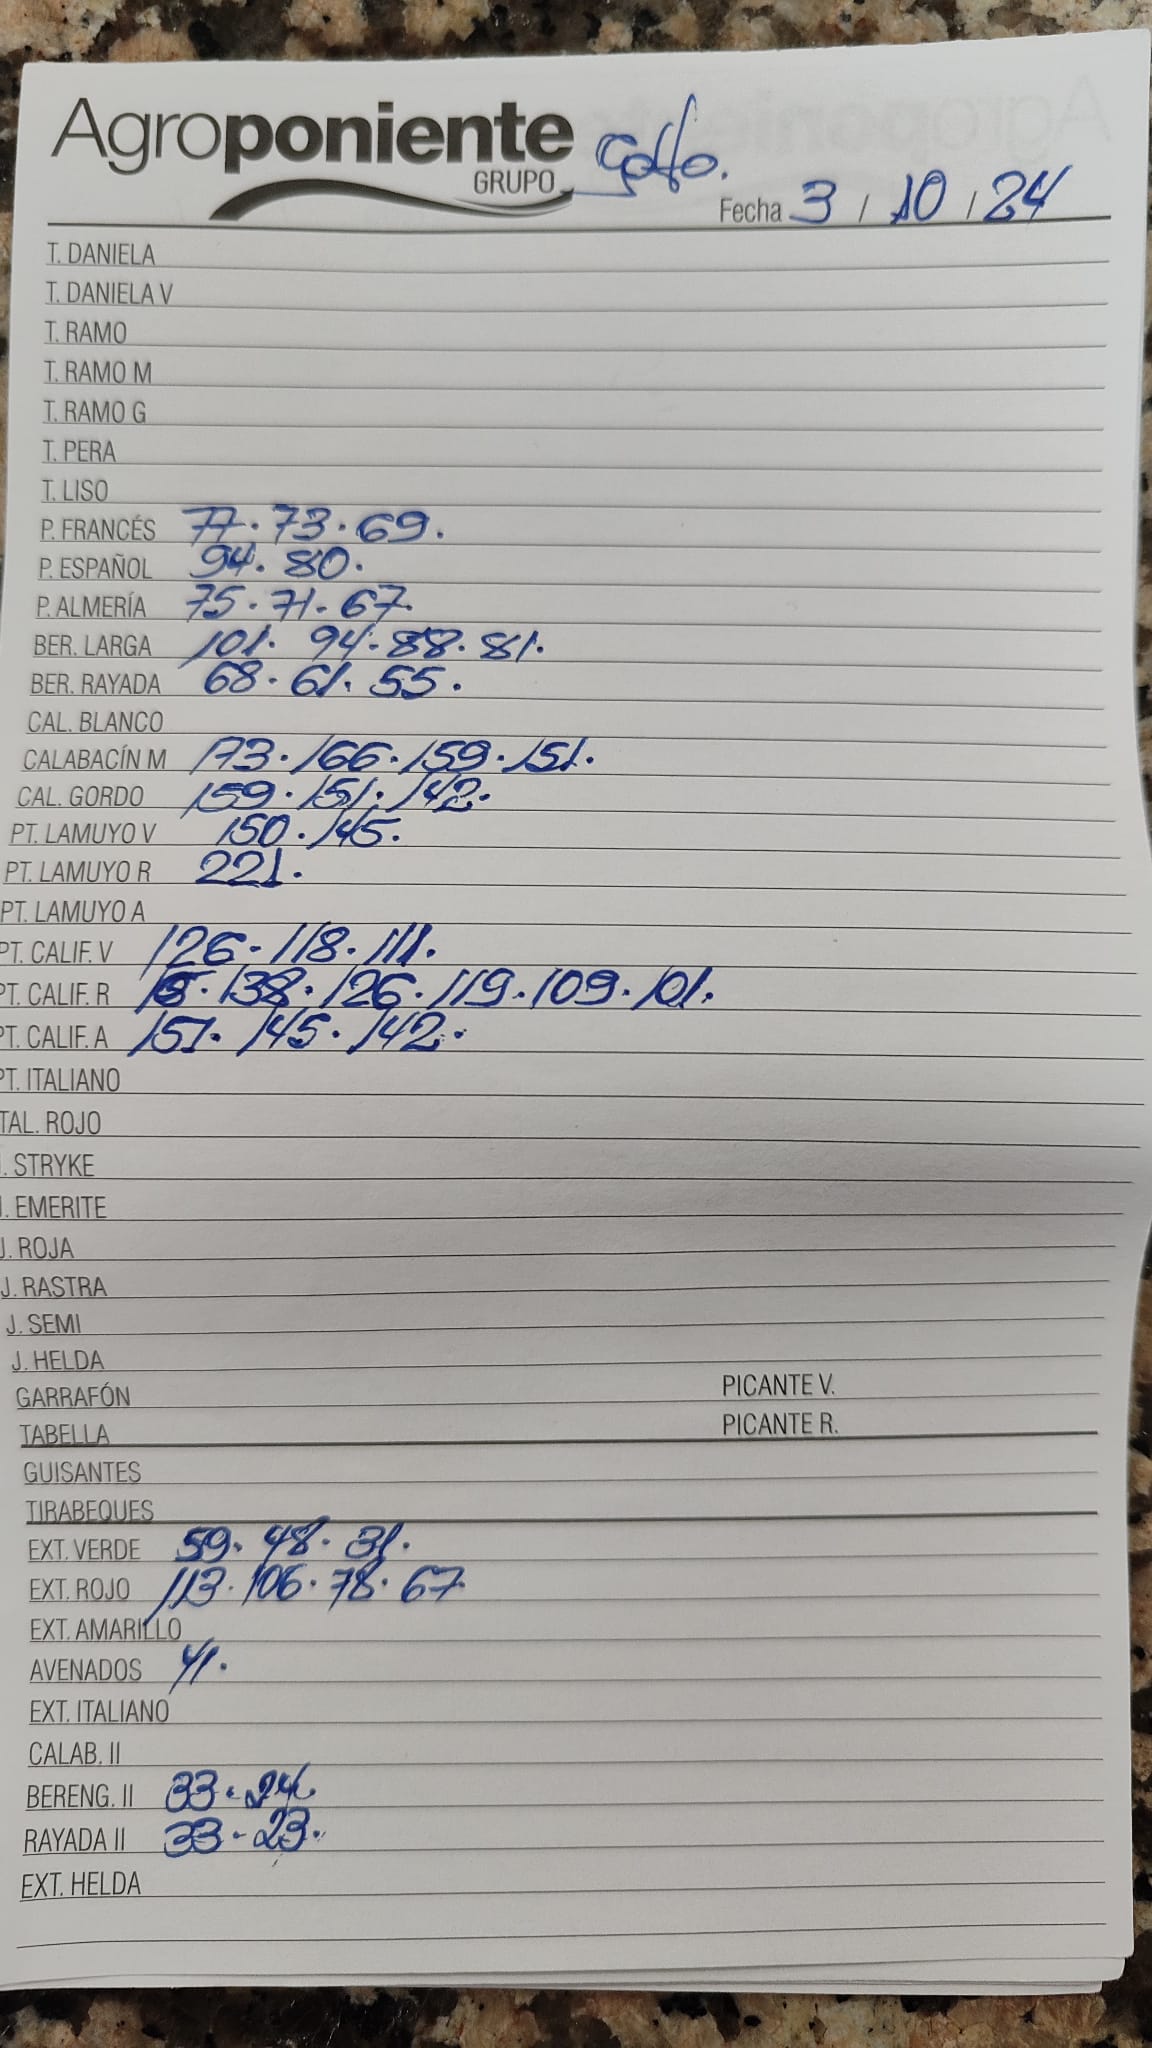 Agroponiente
GRUPO
Golfo.
Fecha 3 / 10 / 24
T. DANIELA
T. DANIELA V
T. RAMO
T. RAMO M
T. RAMO G
T. PERA
T. LISO
P. FRANCÉS 77. 73. 69.
P. ESPAÑOL 94. 80.
P. ALMERÍA 75. 71. 67.
BER. LARGA 101. 94. 88. 81.
BER. RAYADA 68. 61. 55.
CAL. BLANCO
CALABACÍN M 173. 166. 159. 151.
CAL. GORDO 159. 151. 142.
PT. LAMUYO V 150. 145.
PT. LAMUYO R 221.
PT. LAMUYO A
PT. CALIF. V 126. 118. 111.
PT. CALIF. R 138. 126. 119. 109. 101.
PT. CALIF. A 151. 145. 142.
PT. ITALIANO
TAL. ROJO
. STRYKE
J. EMERITE
J. ROJA
J. RASTRA
J. SEMI
J. HELDA
GARRAFÓN PICANTE V.
TABELLA PICANTE R.
GUISANTES
TIRABEQUES
EXT. VERDE 59. 48. 31.
EXT. ROJO 113. 106. 78. 67.
EXT. AMARILLO
AVENADOS 41.
EXT. ITALIANO
CALAB. II
BERENG. II 33. 24.
RAYADA II 33. 23.
EXT. HELDA